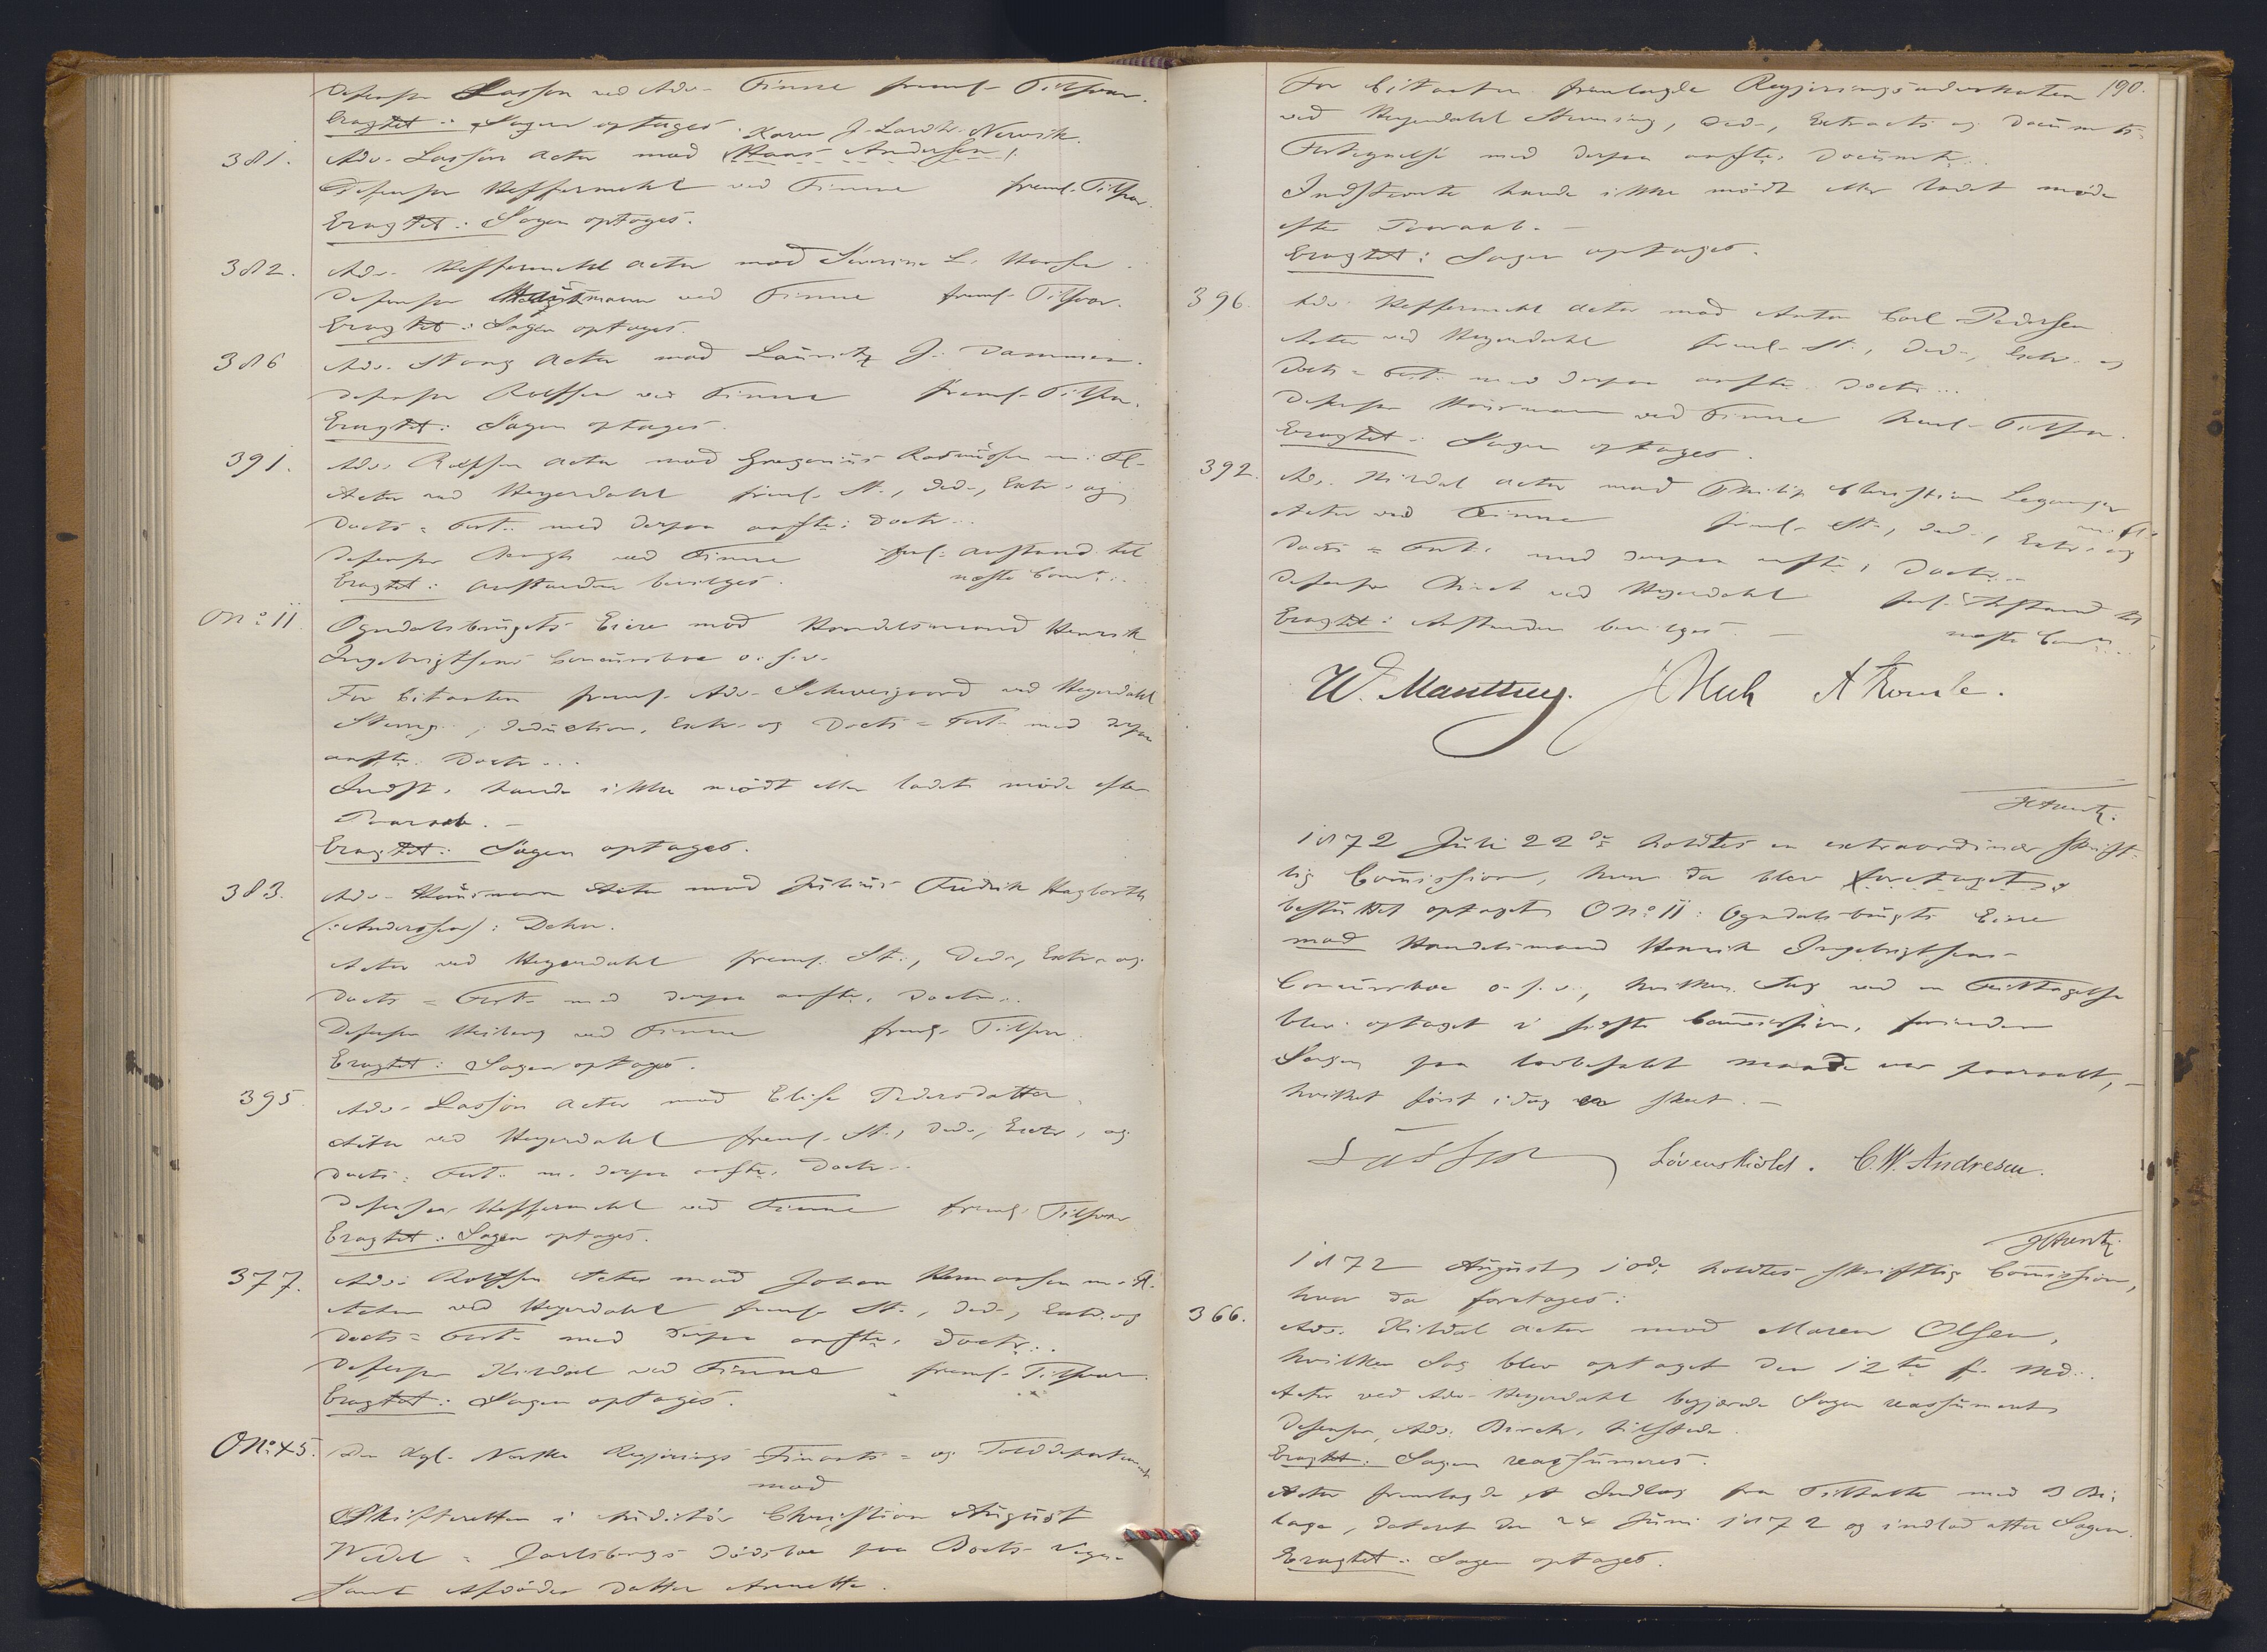 Defensor Lasson ved Adv. Finne freml. Tilsvar.
Eragtet: Sagen optages.
Karen J. Lardtr. Nervik.
381. Adv. Lasson Actor mod Hans Andersen
Defensor Heffermehl ved Finne freml. Tilsvar.
Eragtet: Sagen optages.
382. Adv. Heffermehl Actor mod Severine L. Hansen
Defensor Hausmann ved Finne freml. Tilsvar.
Eragtet: Sagen optages.
386 Adv. Stang Actor mod Lauritz J. Dammen.
Defensor Rolfsen ved Finne freml. Tilsvar.
Eragtet: Sagen optages.
391. Adv. Rolfsen Actor mod Gregorius Rasmussen m. Fl.
Actor ved Heyerdahl freml. St., Ded., Extr. og
Docts = Fort. med derpaa anførte Doctr..
Defensor Bergh ved Finne forl. Anstand til
Eragtet: Anstanden bevilges. næste Comn..
O No 11. Ogndalsbrugets Eiere mod Handelsmand Henrik
Ingebrigtsens Concursboe o. s. v.
For Citanten freml. Adv. Schweigaard ved Heyerdahl
Stevng., Deduction, Extr. og Docts = Fort. med derpaa
anførte Doctr...
Indst. havde ikke mødt eller ladet møde efter
Paaraab. —
Eragtet: Sagen optages.
383. Adv. Hausmann Actor mod Julius Fredrik Hagbarth
(: Andersen): Dehn.
Actor ved Heyerdahl freml. St., Ded., Extr. og
Docts = Fort. med derpaa anførte Doctr...
Defensor Heiberg ved Finne freml. Tilsvar.
Eragtet: Sagen optages.
395. Adv. Lasson Actor mod Elise Pedersdatter.
Actor ved Heyerdahl freml. St., Ded., Extr. og
Docts = Fort. m. derpaa anførte Doctr..
Defensor Heffermehl ved Finne freml. Tilsvar
Eragtet: Sagen optages.
377. Adv. Rolfsen Actor mod Johan Hermansen m. Fl.
Actor ved Heyerdahl freml. St., Ded., Extr. og
Docts = Fort. med derpaa anførte Doctr..
Defensor Kildal ved Finne freml. Tilsvar.
Eragtet: Sagen optages.
O No 45. Den Kgl. Norske Regjerings Finants = og Tolddepartement
mod
Skifteretten i Auditør Christian August
Wedel = Jarlsbergs Dødsboe paa Boets Vegne
samt Afdødes Datter Annette.
190.
For Citanten fremlagde Regjeringsadvokaten
ved Heyerdahl Stevning, Ded., Extracts og Documents
Fortegnelse med derpaa anførte Documtr..
Indstevnte havde ikke mødt eller ladet møde
efter Paaraab. —
Eragtet: Sagen optages.
396. Adv. Heffermehl Actor mod Anton Carl Pedersen
Actor ved Heyerdahl freml. St., Ded., Extr. og
Docts = Fort. med derpaa anførte Doctr...
Defensor Hausmann ved Finne freml. Tilsvar.
Eragtet: Sagen optages.
392. Adv. Kildal Actor mod Philip Christian Leganger
m. Fl.
Actor ved Finne freml. St., Ded., Extr. og
Docts = Fort. med derpaa anførte Doctr...
Defensor Birch ved Heyerdahl forl. Anstand til
Eragtet: Anstanden bevilges. — næste Comn..
W. Manthey. Hch A Roude.
1872 Juli 22de holdtes en extraordinær skrift=
lig Commission, hvor da blev foretaget og
besluttet optaget O No 11: Ogndalsbrugets Eiere
mod Handelsmand Henrik Ingebrigtsens
Concursboe o. s. v., hvilken Sag ved en Feiltagelse
blev optaget i sidste Commission, forinden
Sagen paa lovbefalt Maade var paaraabt,
hvilket først idag er skeet. —
Lasson Løvenskiold. C. W. Andresen.
1872 August 10de holdtes skriftlig Commission,
hvor da foretages:
366. Adv. Kildal Actor mod Maren Olsen,
hvilken Sag blev optaget den 12te f. Md..
Actor ved Adv. Heyerdahl begjærede Sagen reassumeret,
Defensor, Adv. Birch, tilstede.
Eragtet: Sagen reassumeres.
Actor fremlagde et Indlæg fra Tiltalte med 3 Bi=
lage, dateret den 24 Juni 1872 og indlod atter Sagen.
Eragtet: Sagen optages.